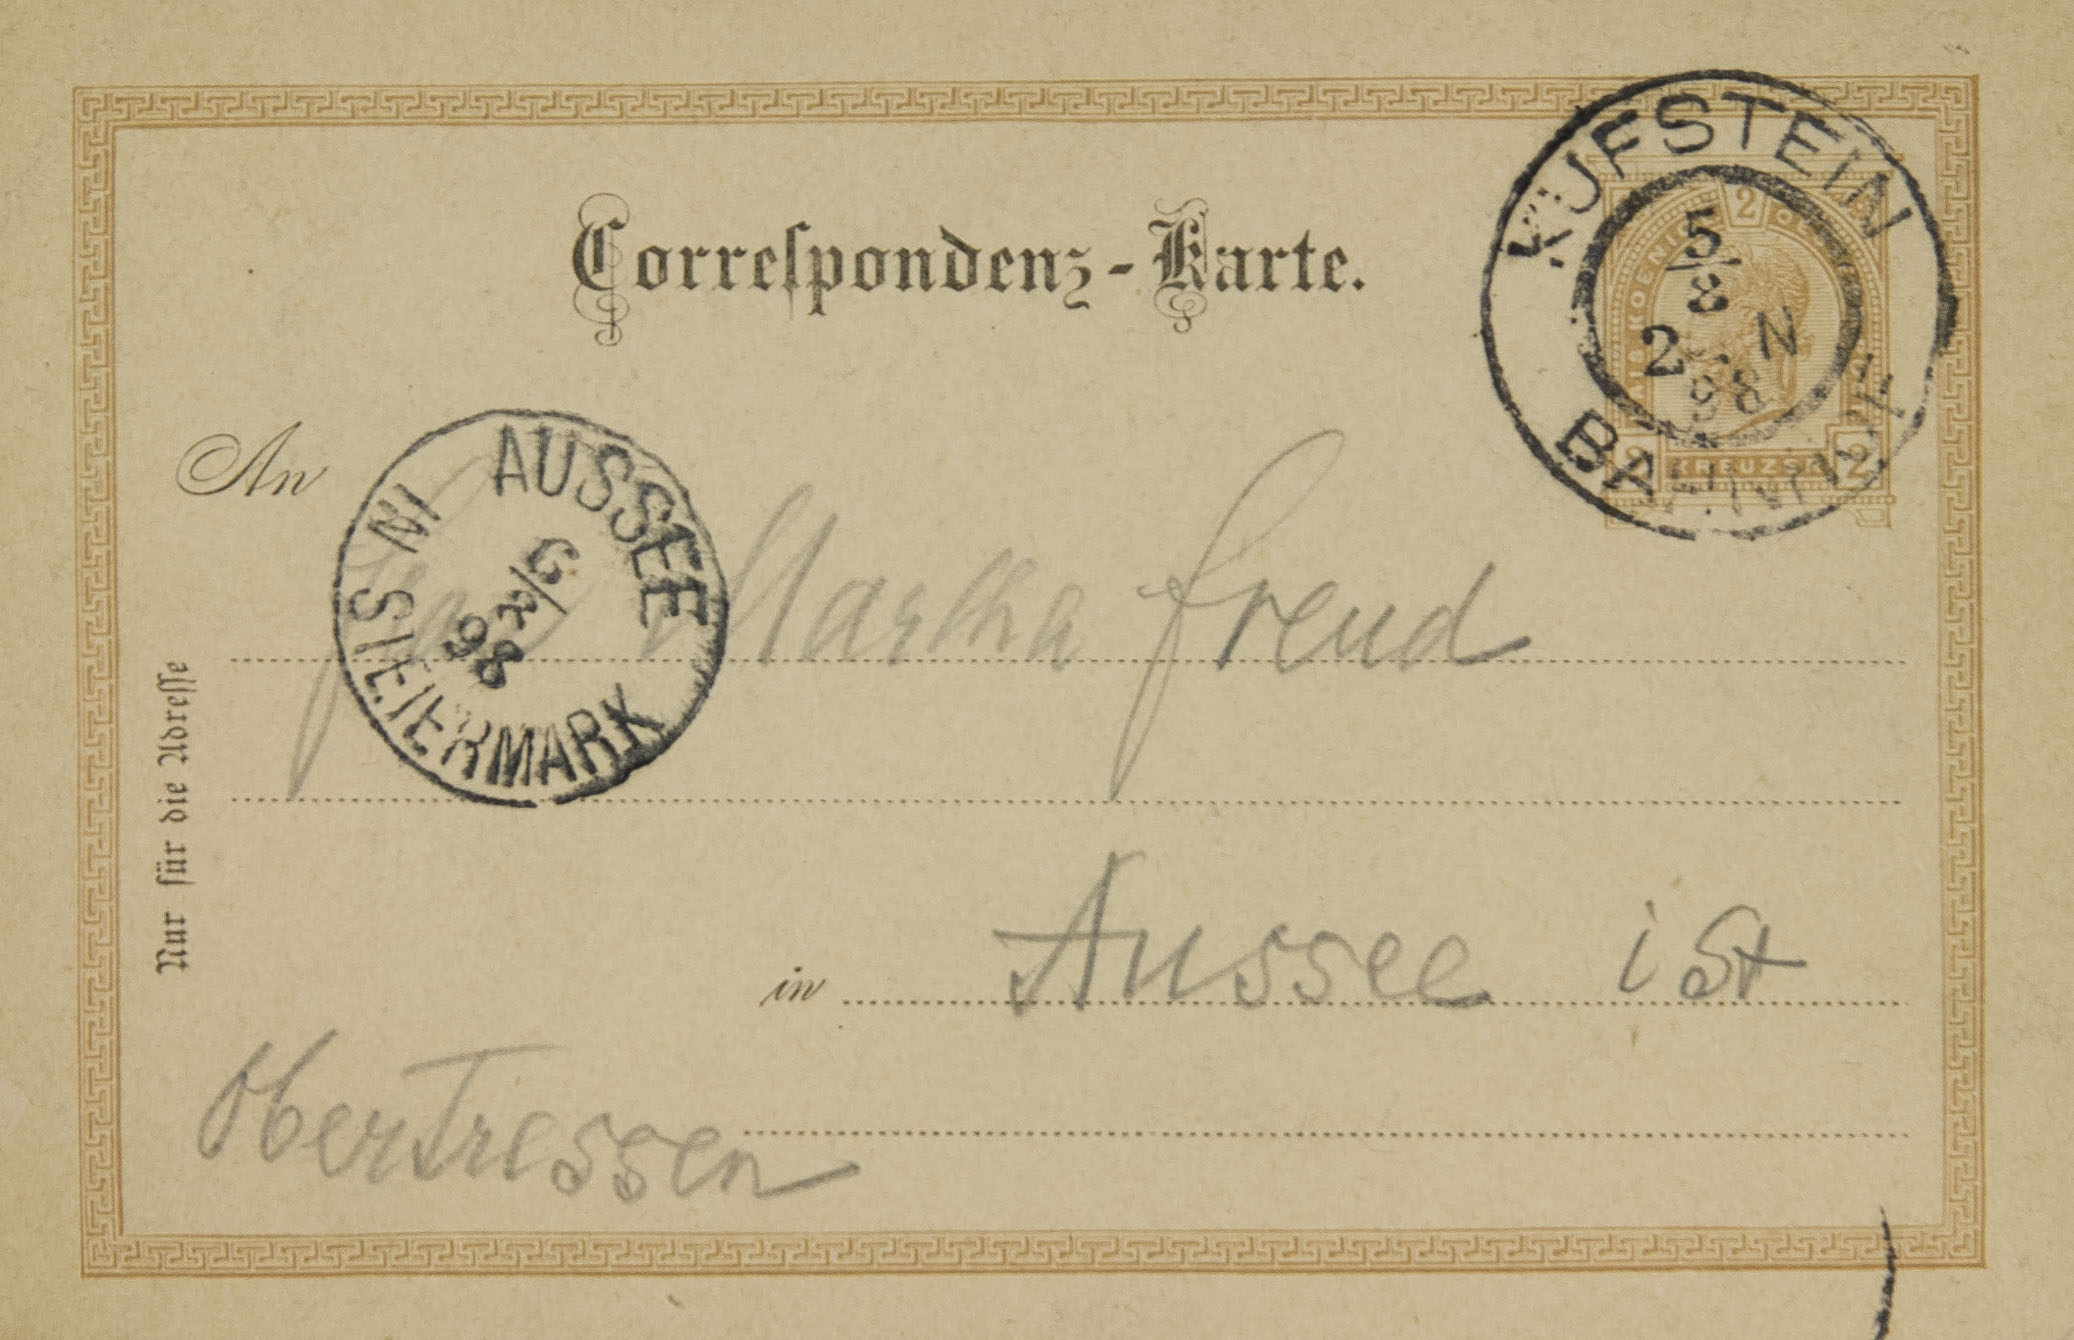 Correspondenz-Karte.
KUFSTEIN
5/8
2 N
98
BAHNHOF
2
2 KREUZER 2
An
AUSSEE
IN STEIERMARK
6/8
98
Frau Martha Freud
Nur für die Adresse
in Aussee i St
Obertressen